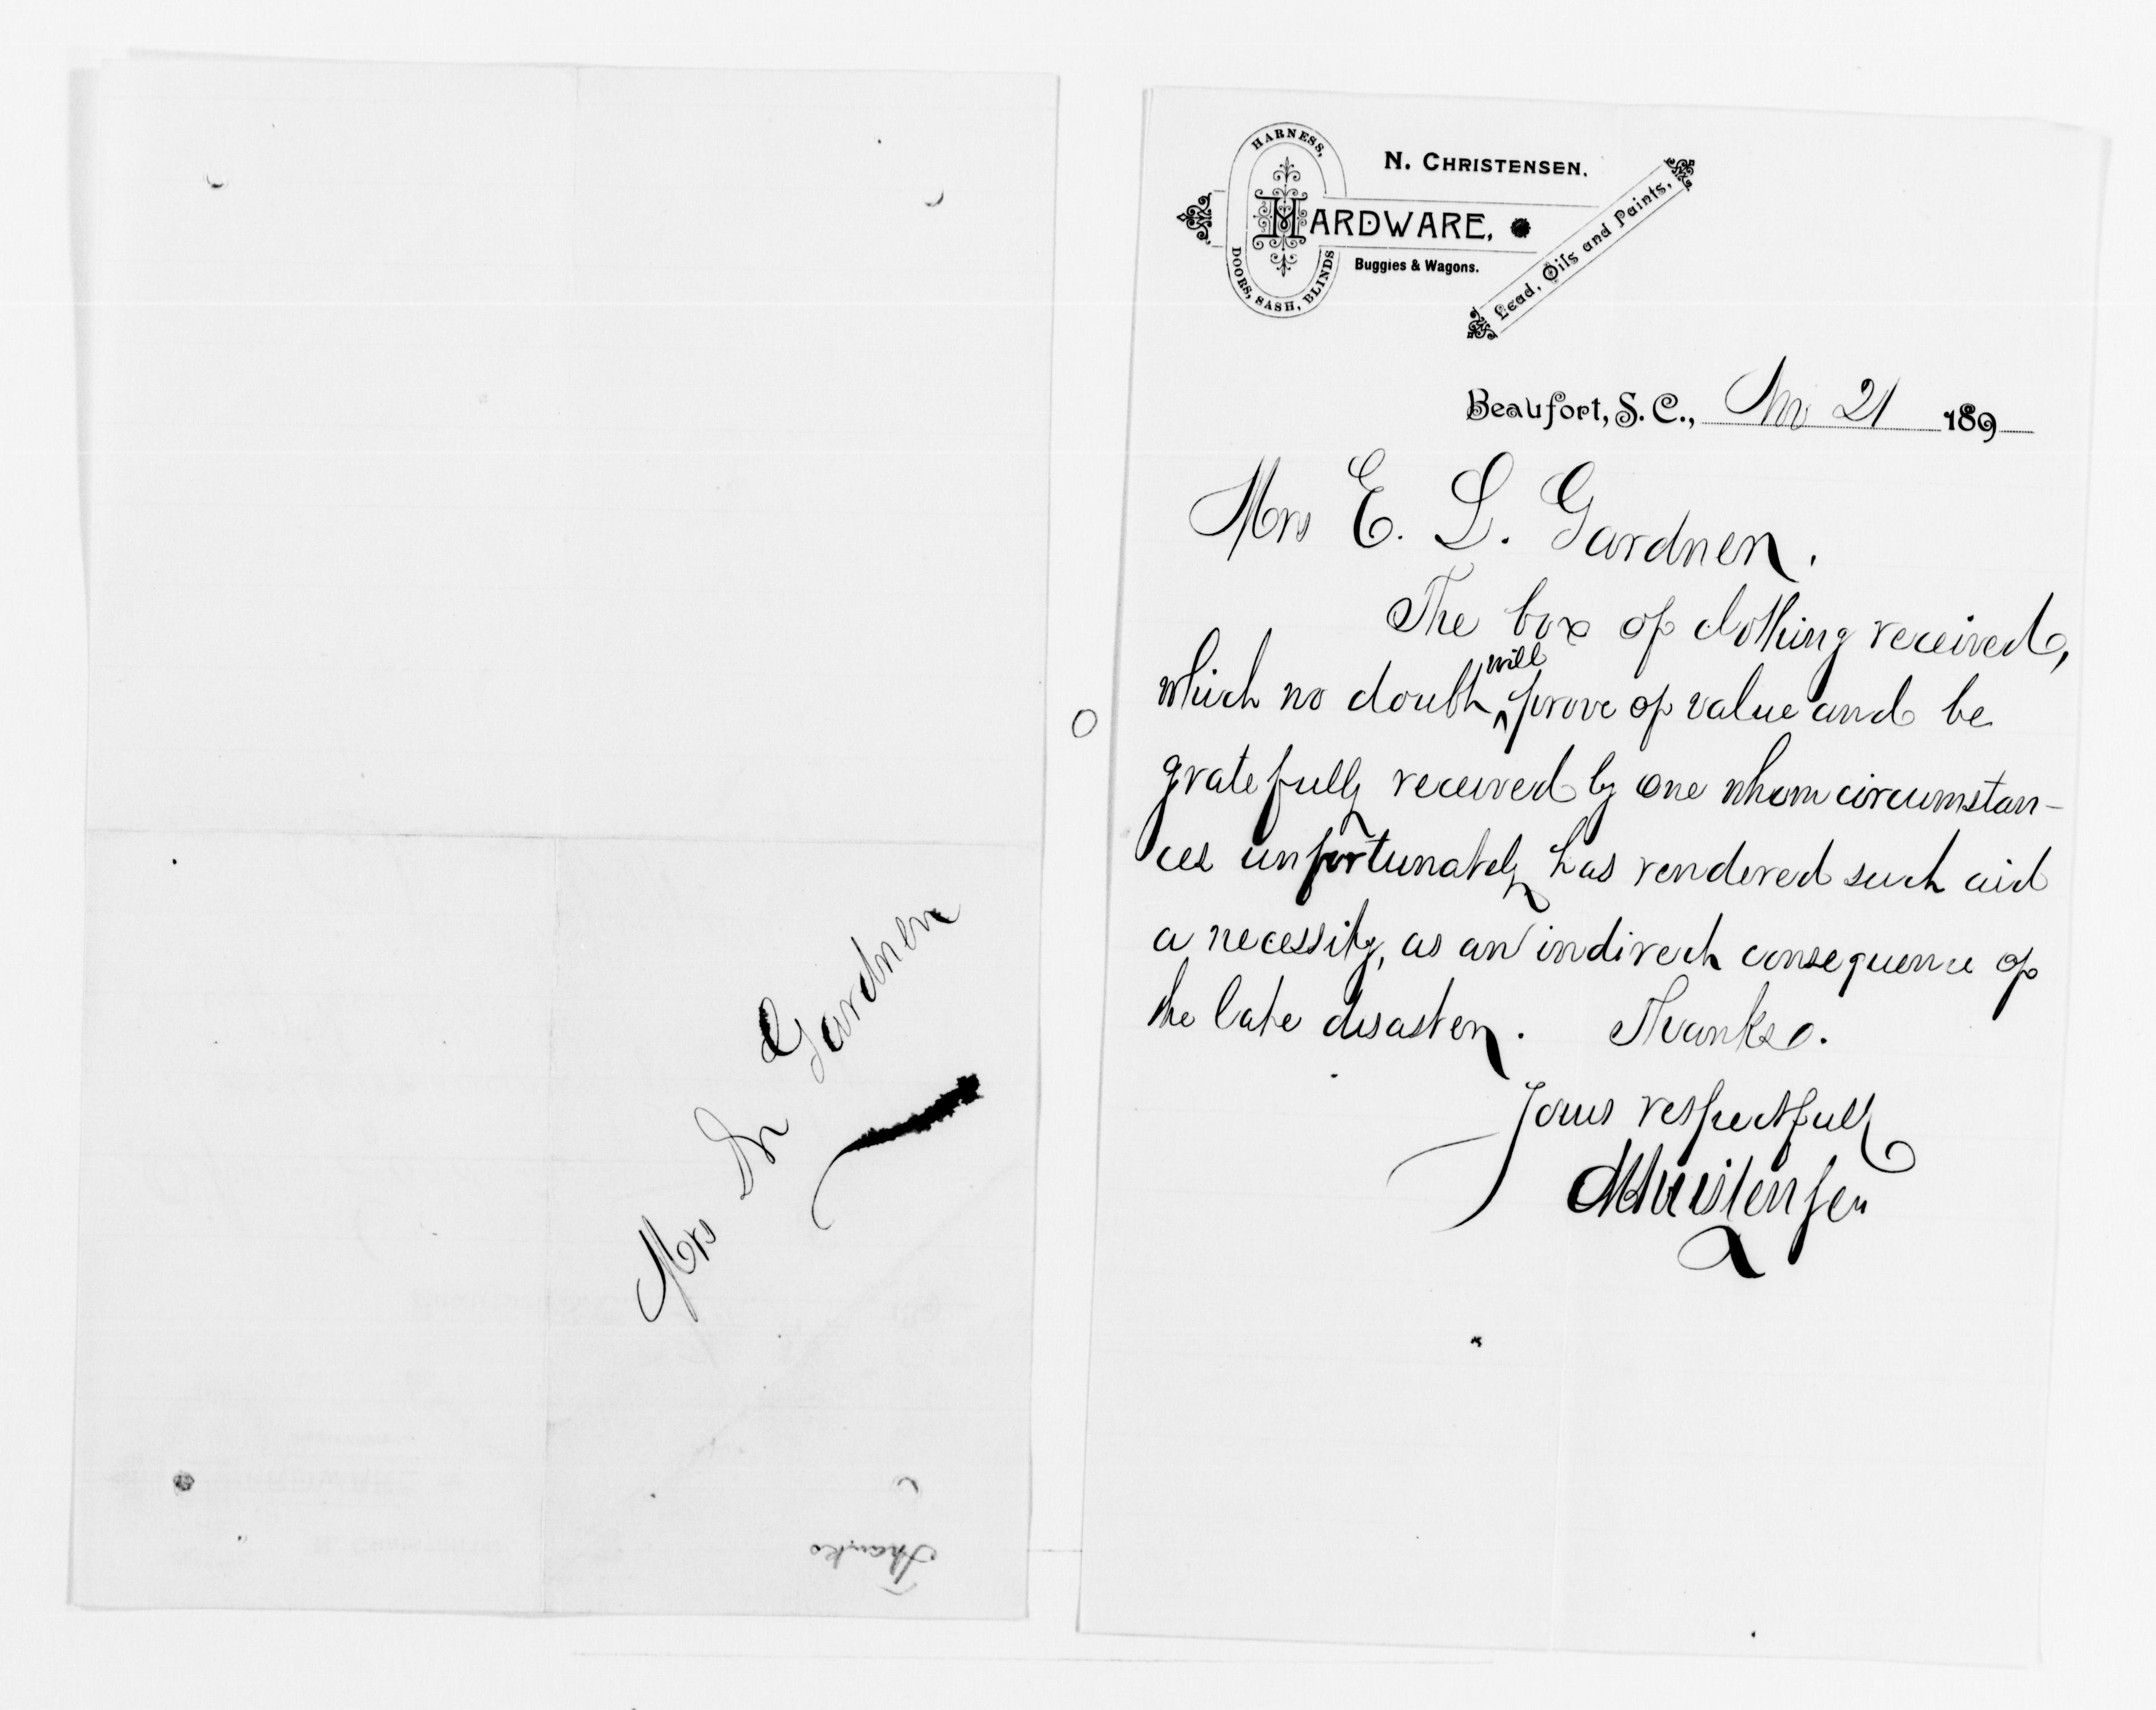 Mrs Dr Gardner
Thanks
N. CHRISTENSEN.
HARNESS,
HARDWARE,
DOORS, SASH, BLINDS
Buggies & Wagons.
Lead, Oils and Paints,
Beaufort, S. C., Nov 21 189
Mrs E. L. Gardner.
The box of clothing received,
which no doubt will prove of value and be
gratefully received by one whom circumstan-
ces unfortunately has rendered such aid
a necessity, as an indirect consequence of
the late disaster. Thanks.
Yours respectfully
N Christensen